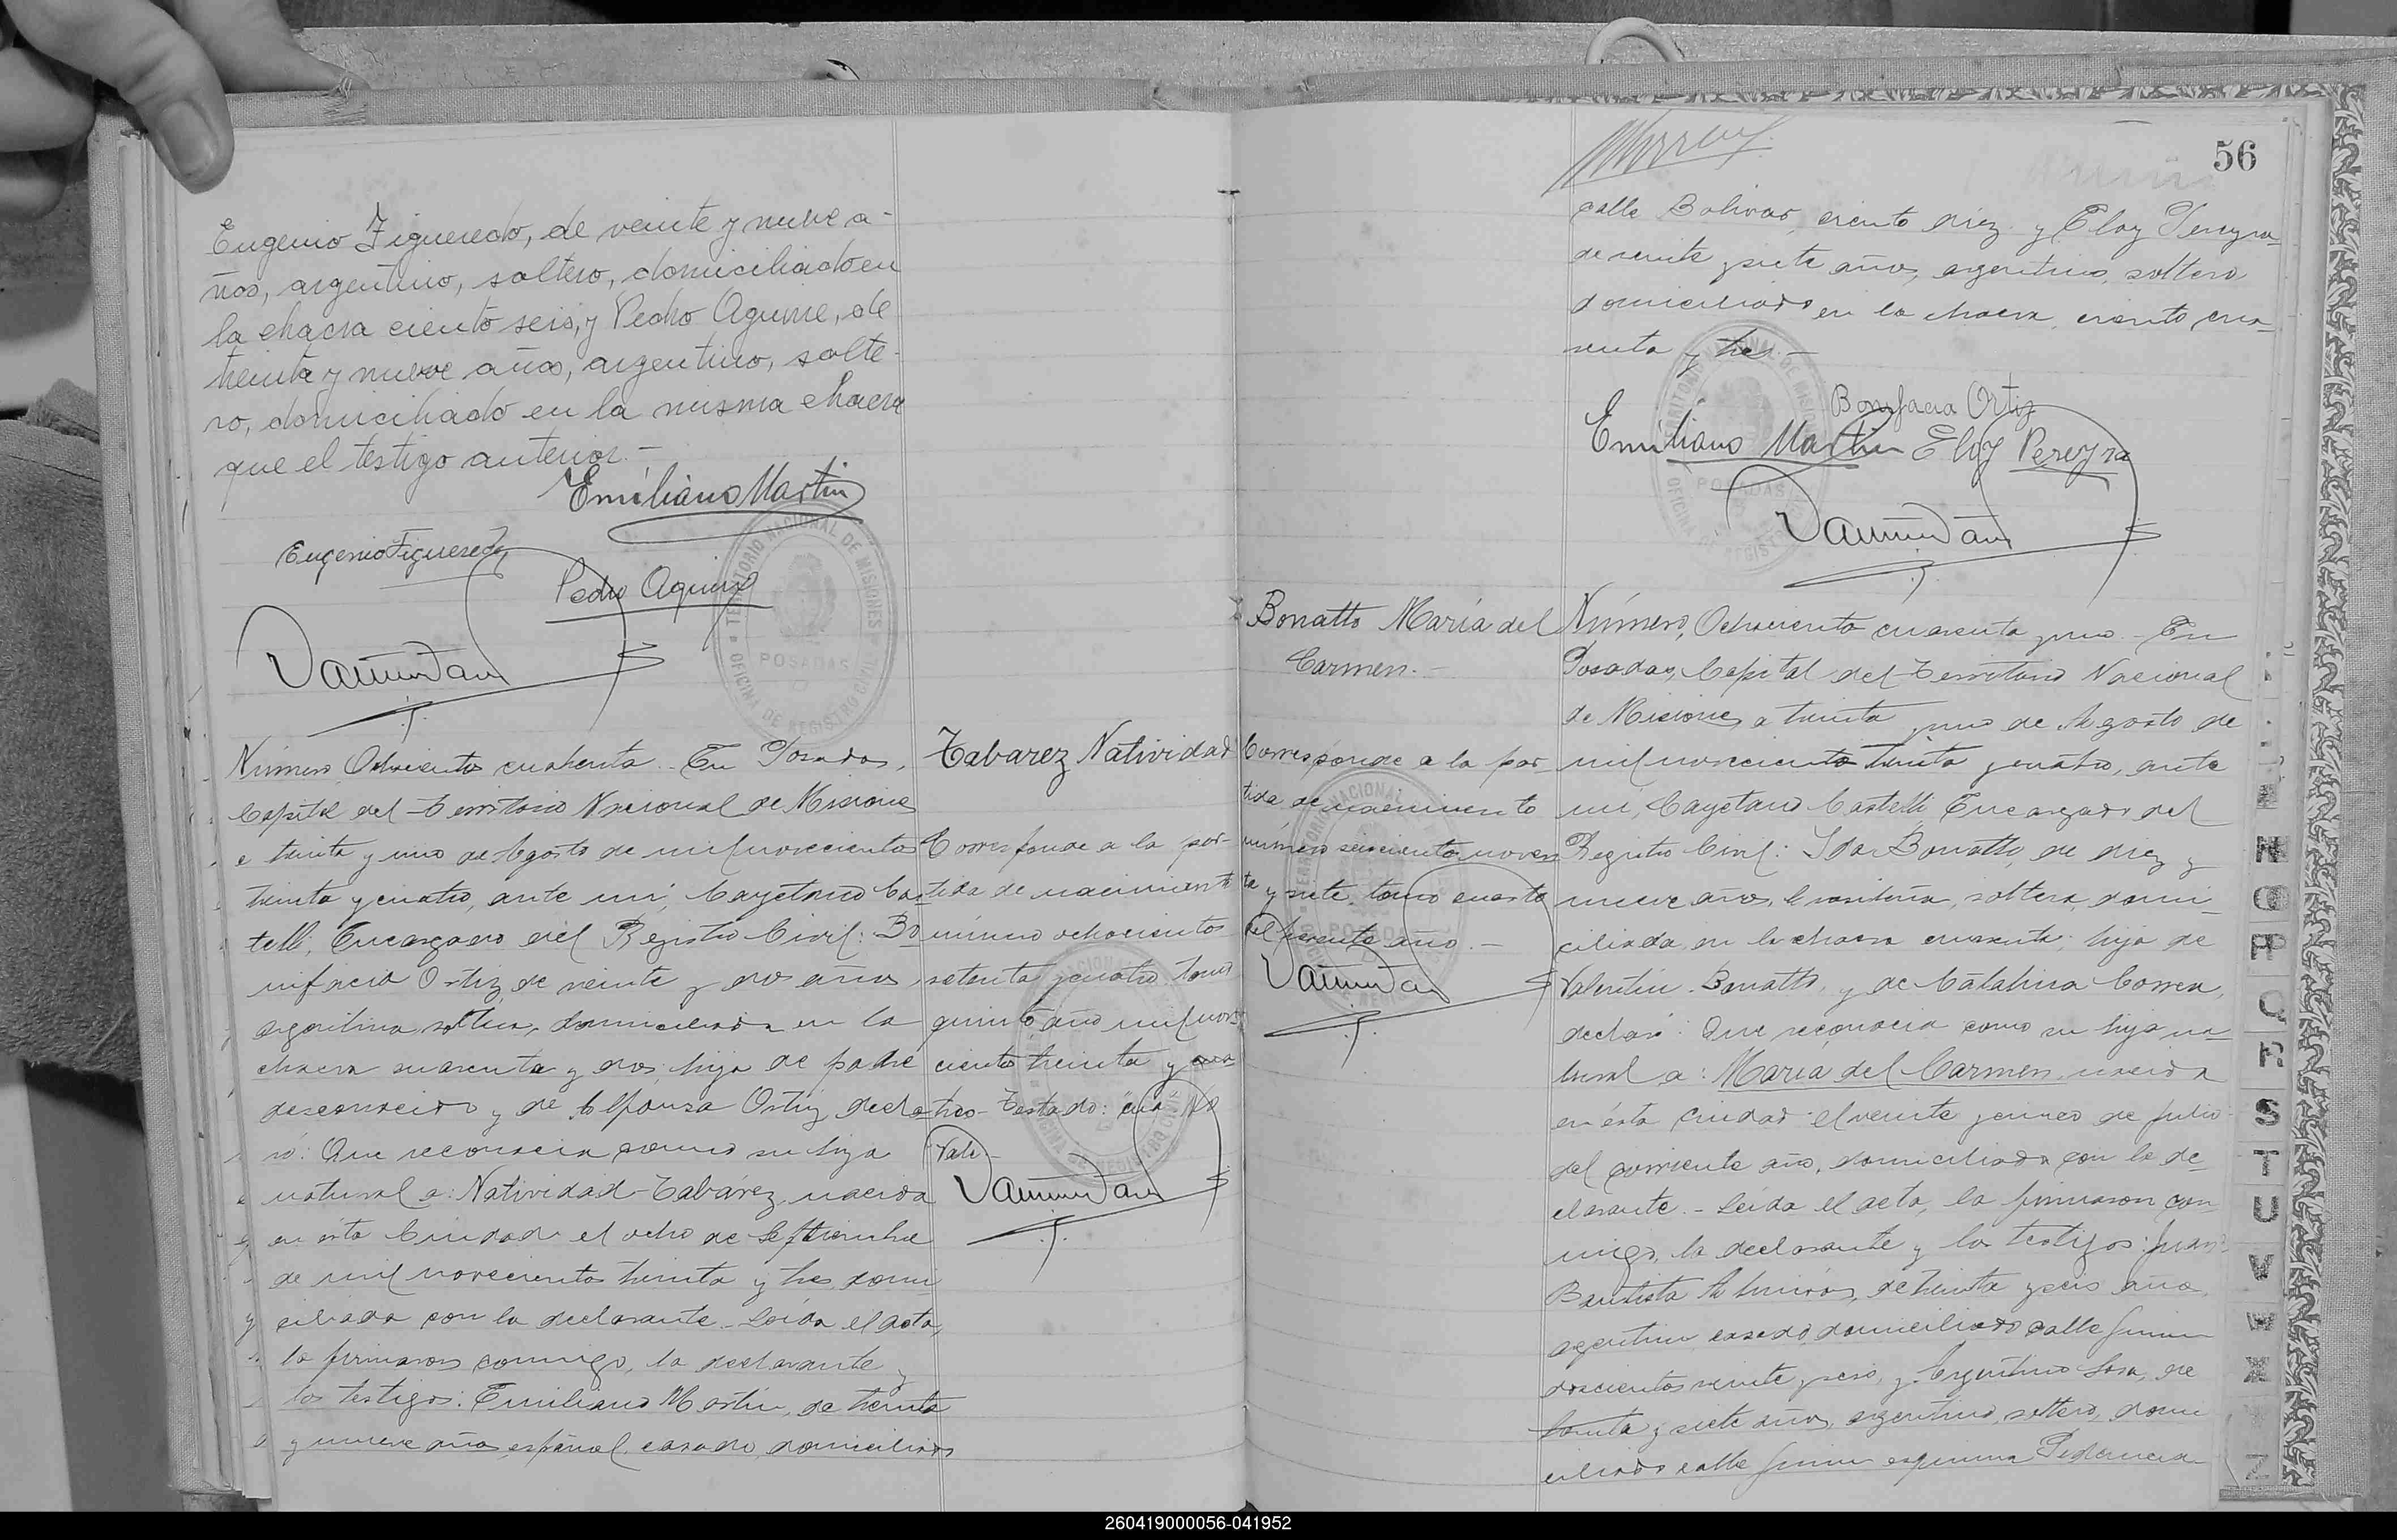 Eugenio Figueredo, de veinte y nueve a-
ños, argentino, soltero, domiciliado en
la chacra ciento seis, y Pedro Aguirre, de
treinta y nueve años, argentino, solte-
ro, domiciliado en la misma chacra
que el testigo anterior.-
Emiliano Martin
Eugenio Figueredo
Pedro Aguirre
TERRITORIO NACIONAL DE MISIONES
POSADAS
OFICINA DE REGISTRO CIVIL
Número Ochocientos cuarenta.- En Posadas,
Capital del Territorio Nacional de Misiones
a treinta y uno de Agosto de mil novecientos
treinta y cuatro, ante mí, Cayetano Cas-
telli, Encargado del Registro Civil: Bo-
nifacia Ortiz, de veinte y dos años,
argentina, soltera, domiciliada en la
chacra cuarenta y dos, hija de padre
desconocido y de Alfonsa Ortiz, decla-
ró: Que reconocia como su hija
natural a: Natividad Tabárez, nacida
en ésta Ciudad el ocho de Septiembre
de mil novecientos treinta y tres, domi-
ciliada con la declarante.- Leída el acta,
la firmaron conmigo, la declarante y
los testigos: Emiliano Martin, de treinta
y nueve años, español, casado, domiciliado
Tabarez Natividad
Corresponde a la par-
tida de nacimiento
número ochocientos
setenta y cuatro, tomo
quinto año mil nove
ciento treinta y cua
tro- Testado: "cua" No
Vale-
56
calle Bolivar, ciento diez y Eloy Pereyra
de veinte y siete años, argentino, soltero
domiciliado en la chacra ciento cua-
renta y tres.-
Bonifacia Ortiz
Emiliano Martin Eloy Pereyra
POSADAS
Bonatto María del
Carmen.-
Corresponde a la par-
tida de nacimiento
número seiscientos noven
ta y siete, tomo cuarto
del presente año.-
Número, Ochocientos cuarenta y uno.- En
Posadas, Capital del Territorio Nacional
de Misiones a treinta y uno de Agosto de
mil novecientos treinta y cuatro, ante
mí, Cayetano Castelli, Encargado del
Registro Civil: Ida Bonatto, de diez y
nueve años, brasileña, soltera, domi-
ciliada en la chacra cuarenta, hija de
Valentin Bonatto, y de Catalina Correa,
declaró: Que reconocia como su hija na-
tural a: María del Carmen, nacida
en ésta ciudad el veinte y cinco de julio
del corriente año, domiciliada con la de-
clarante.- Leída el acta, la firmaron con-
migo, la declarante y los testigos: Juan
Bautista Almirón, de treinta y seis años,
argentino, casado, domiciliado calle Junin
doscientos veinte y seis, y Argentino Sosa, de
treinta y siete años, argentino, soltero, domi
ciliado calle Junin esquina
N
O
P
Q
R
S
T
U
V
W
X
Z
260419000056-041952